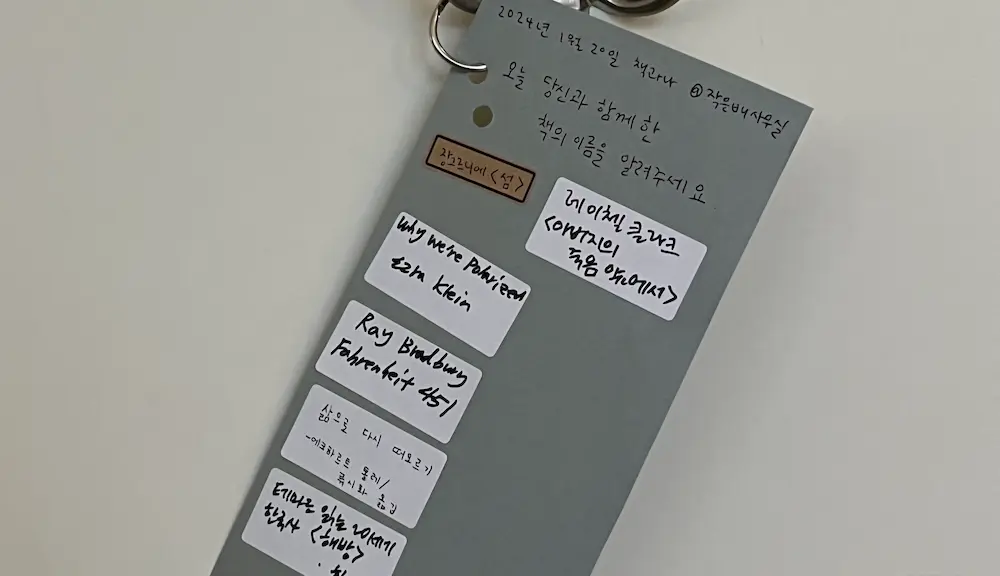 2024년 1월 20일 책과나 @작은배사무실
오늘 당신과 함께 한
책의 이름을 알려주세요.
장그르니에 <섬>
레이첼 클라크
<아버지의
죽음 앞에서>
Why we're Polarized
Ezra Klein
Ray Bradbury
Fahrenheit 451
삶으로 다시 떠오르기
-에크하르트 톨레/
류시화 옮김
테마로 읽는 20세기
한국사 <해방>